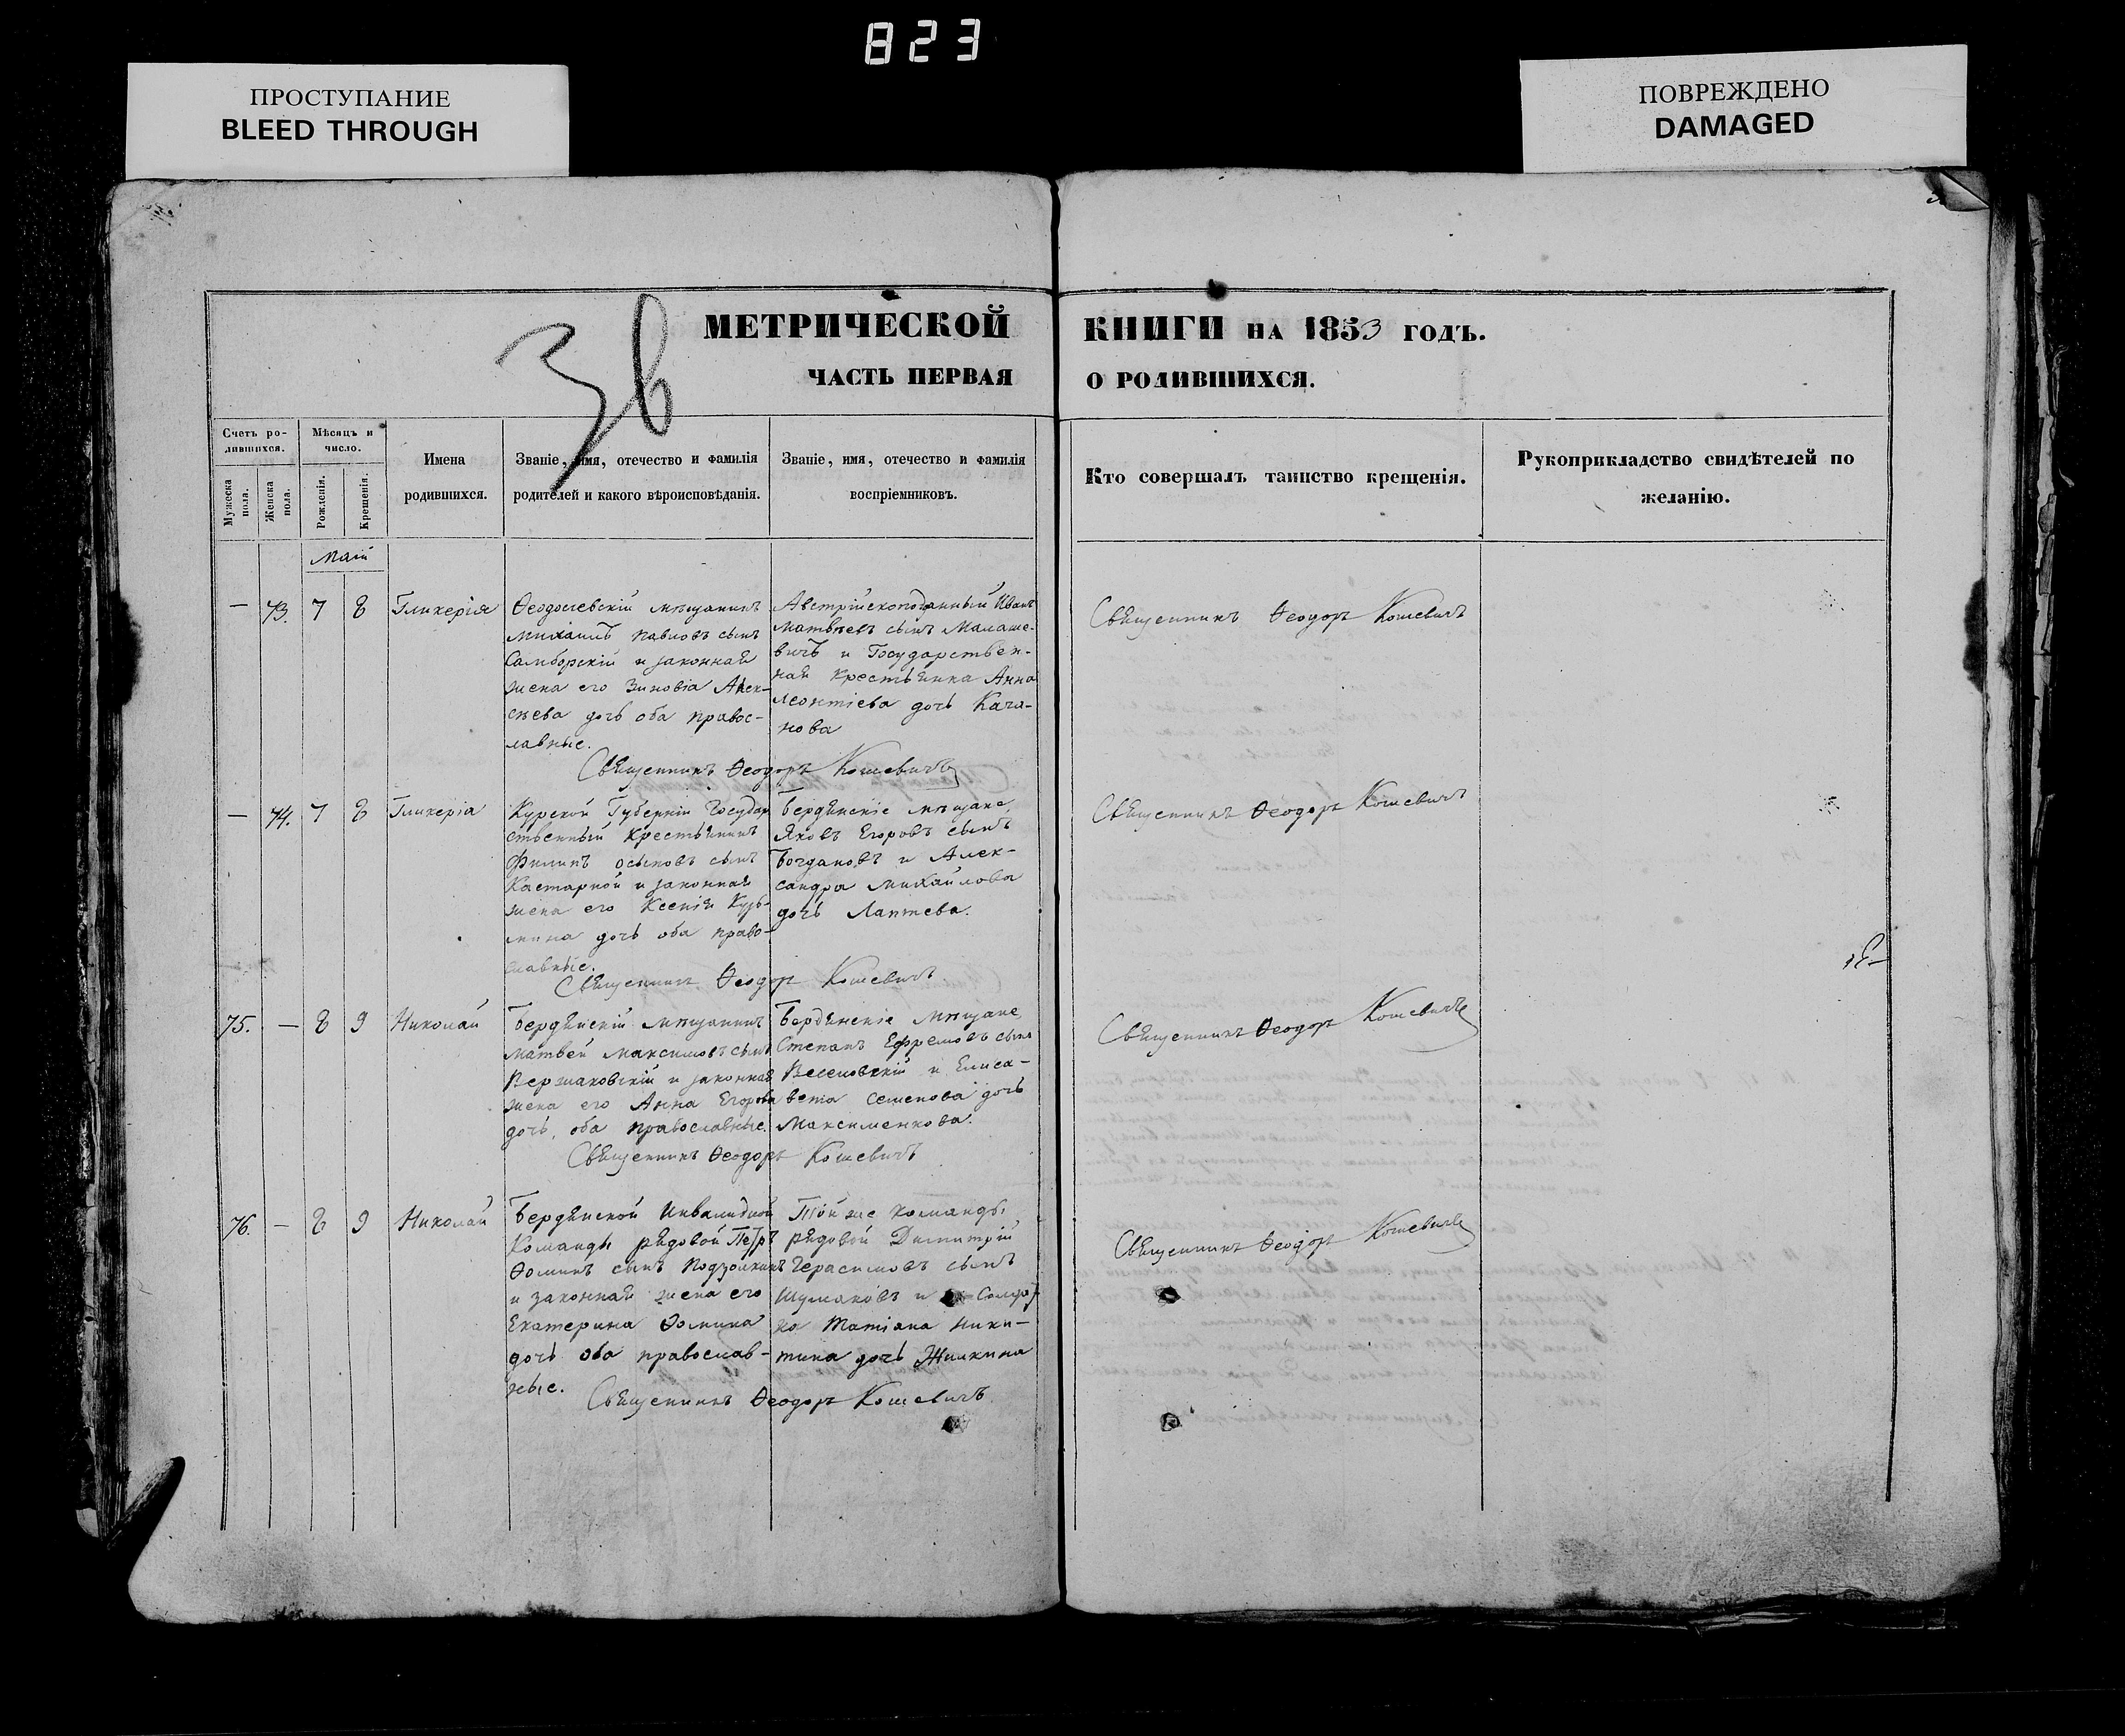 823
ПРОСТУПАНИЕ
BLEED THROUGH
ПОВРЕЖДЕНО
DAMAGED
МЕТРИЧЕСКОЙ КНИГИ НА 1853 ГОДЪ.
ЧАСТЬ ПЕРВАЯ О РОДИВШИХСЯ.
Счетъ ро-
дившихся.
Мужеска пола.
Женска пола.
Мѣсяцъ и
число.
Рожденія.
Крещенія.
Имена
родившихся.
Званіе, имя, отечество и фамилія
родителей и какого вѣроисповѣданія.
Званіе, имя, отечество и фамилія
воспріемниковъ.
Кто совершалъ таинство крещенія.
Рукоприкладство свидѣтелей по
желанію.
Маій
— 73. 7 8 Гликерія
Ѳеодосіевскій мѣщанинъ
Михаилъ Павловъ сынъ
Самборскій и законная
жена его Зиновія Алек-
сѣева дочь оба правос-
лавные.
Австрійскоподанный Иванъ
Матвѣевъ сынъ Малаше-
вичъ и Государствен-
ная крестьянка Анна
Леонтіева дочь Кача-
нова
Священникъ Ѳеодоръ Кошевичъ
Священникъ Ѳеодоръ Кошевичъ
— 74. 7 8 Гликеріа
Курской Губерніи Государ
ственный крестьянинъ
Филипъ Осиповъ сынъ
Кастарной и законная
жена его Ксенія Кузь-
мина дочь оба право-
славные.
Бердянскіе мѣщане
Яковъ Егоровъ сынъ
Богдановъ и Алек-
сандра Михайлова
дочь Лаптева.
Священникъ Ѳеодоръ Кошевичъ
Священникъ Ѳеодоръ Кошевичъ
75. — 8 9 Николай
Бердянскій мѣщанинъ
Матвей Максимовъ сынъ
Вержаковскій и законная
жена его Анна Егорова
дочь, оба православные.
Бердянскіе мѣщане
Степанъ Ефремовъ сынъ
Веселовскій и Елиса-
вета Семенова дочь
Максименкова.
Священникъ Ѳеодоръ Кошевичъ
Священникъ Ѳеодоръ Кошевичъ
76. — 8 9 Николай
Бердянской Инвалидной
Команды рядовой Петръ
Ѳоминъ сынъ Подзолкинъ
и законная жена его
Екатерина Ѳомина
дочь оба православ-
ные.
Той же команды
рядовой Димитрій
Герасимовъ сынъ
Шумаковъ и Солдат
ка Татіана Ники-
тина дочь Жилкина
Священникъ Ѳеодоръ Кошевичъ
Священникъ Ѳеодоръ Кошевичъ